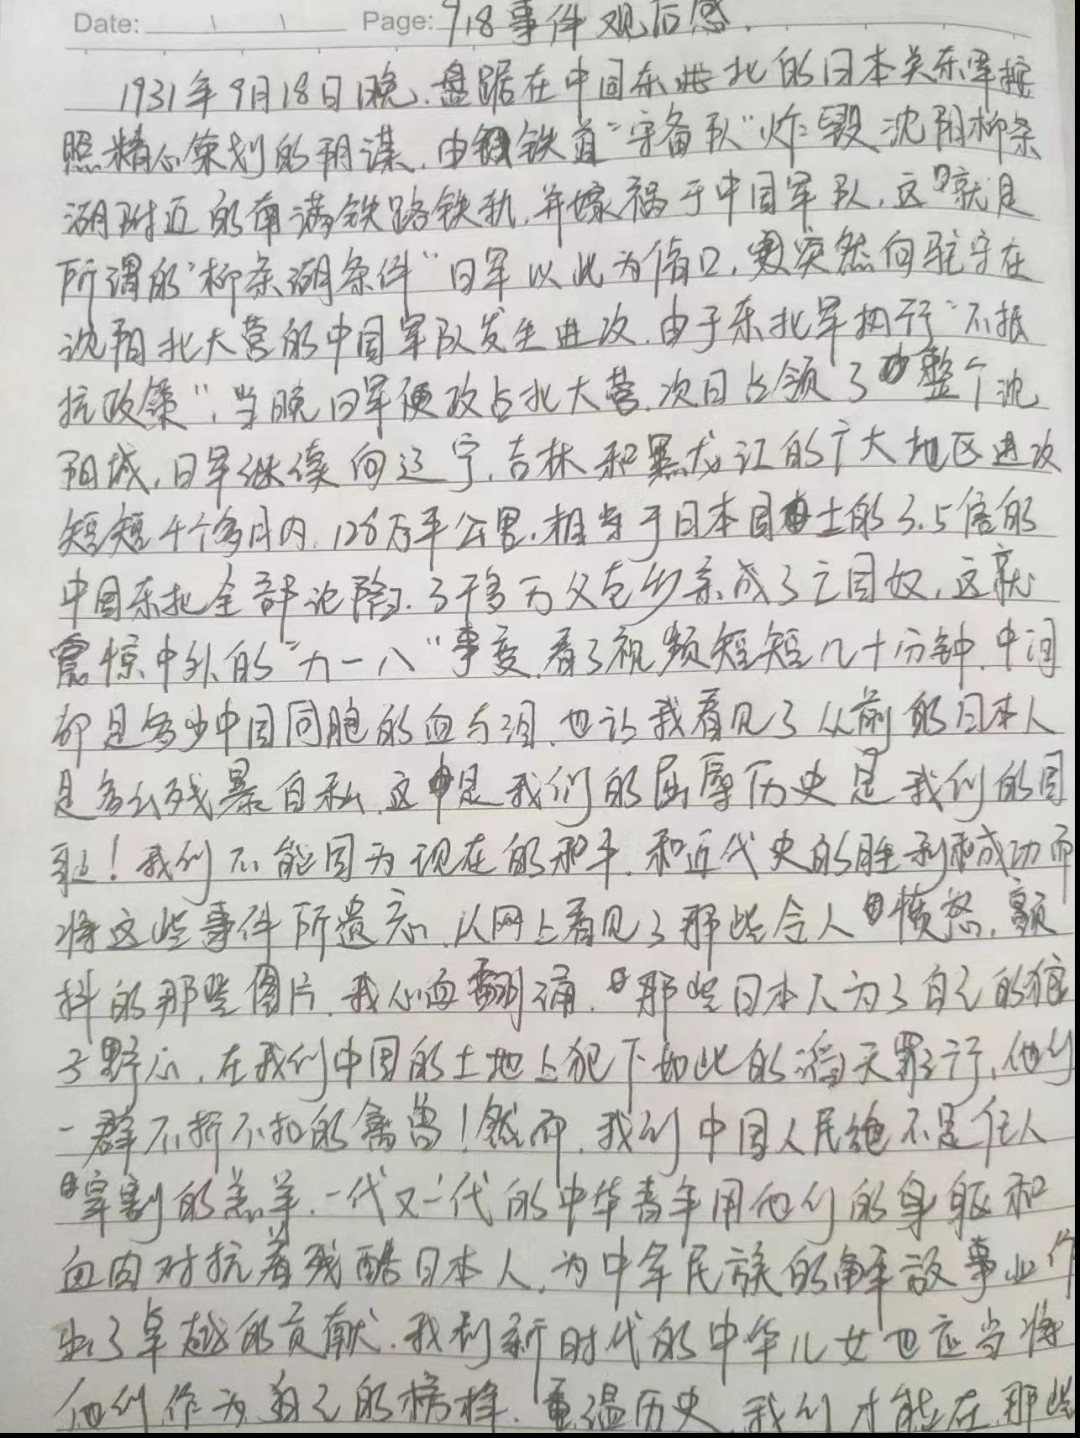 Date: Page: 918事件观后感.
1931年9月18日晚,盘踞在中国东北的日本关东军按
照精心策划的阴谋,由铁道"守备队"炸毁沈阳柳条
湖附近的南满铁路铁轨,并嫁祸于中国军队,这就是
所谓的"柳条湖条件"日军以此为借口,突然向驻守在
沈阳北大营的中国军队发生进攻.由于东北军执行"不抵
抗政策",当晚日军便攻占北大营.次日占领了整个沈
阳城,日军继续向辽宁,吉林和黑龙江的广大地区进攻
短短4个多月内,128万平公里,相当于日本国土的3.5倍的
中国东北全部沦陷.了千多万父老乡亲,成了亡国奴,这就
震惊中外的"九一八"事变,看了视频短短几十分钟,中间
却是多少中国同胞的血与泪,也让我看见了从前的日本人
是多么残暴自私,这是我们的屈辱历史是我们的国
耻!我们不能因为现在的和平,和近代史的胜利和成功而
将这些事件所遗忘,从网上看见了那些令人愤怒,颤
抖的那些图片,我心血翻涌,那些日本人为了自己的狼
子野心,在我们中国的土地上犯下如此的滔天罪行,他们
一群不折不扣的禽兽!然而,我们中国人民绝不是任人
宰割的羔羊,一代又一代的中华青年用他们的身躯和
血肉对抗着残酷日本人,为中华民族的解放事业作
出了卓越的贡献.我们新时代的中华儿女也应当将
他们作为自己的榜样.重温历史,我们才能在那些